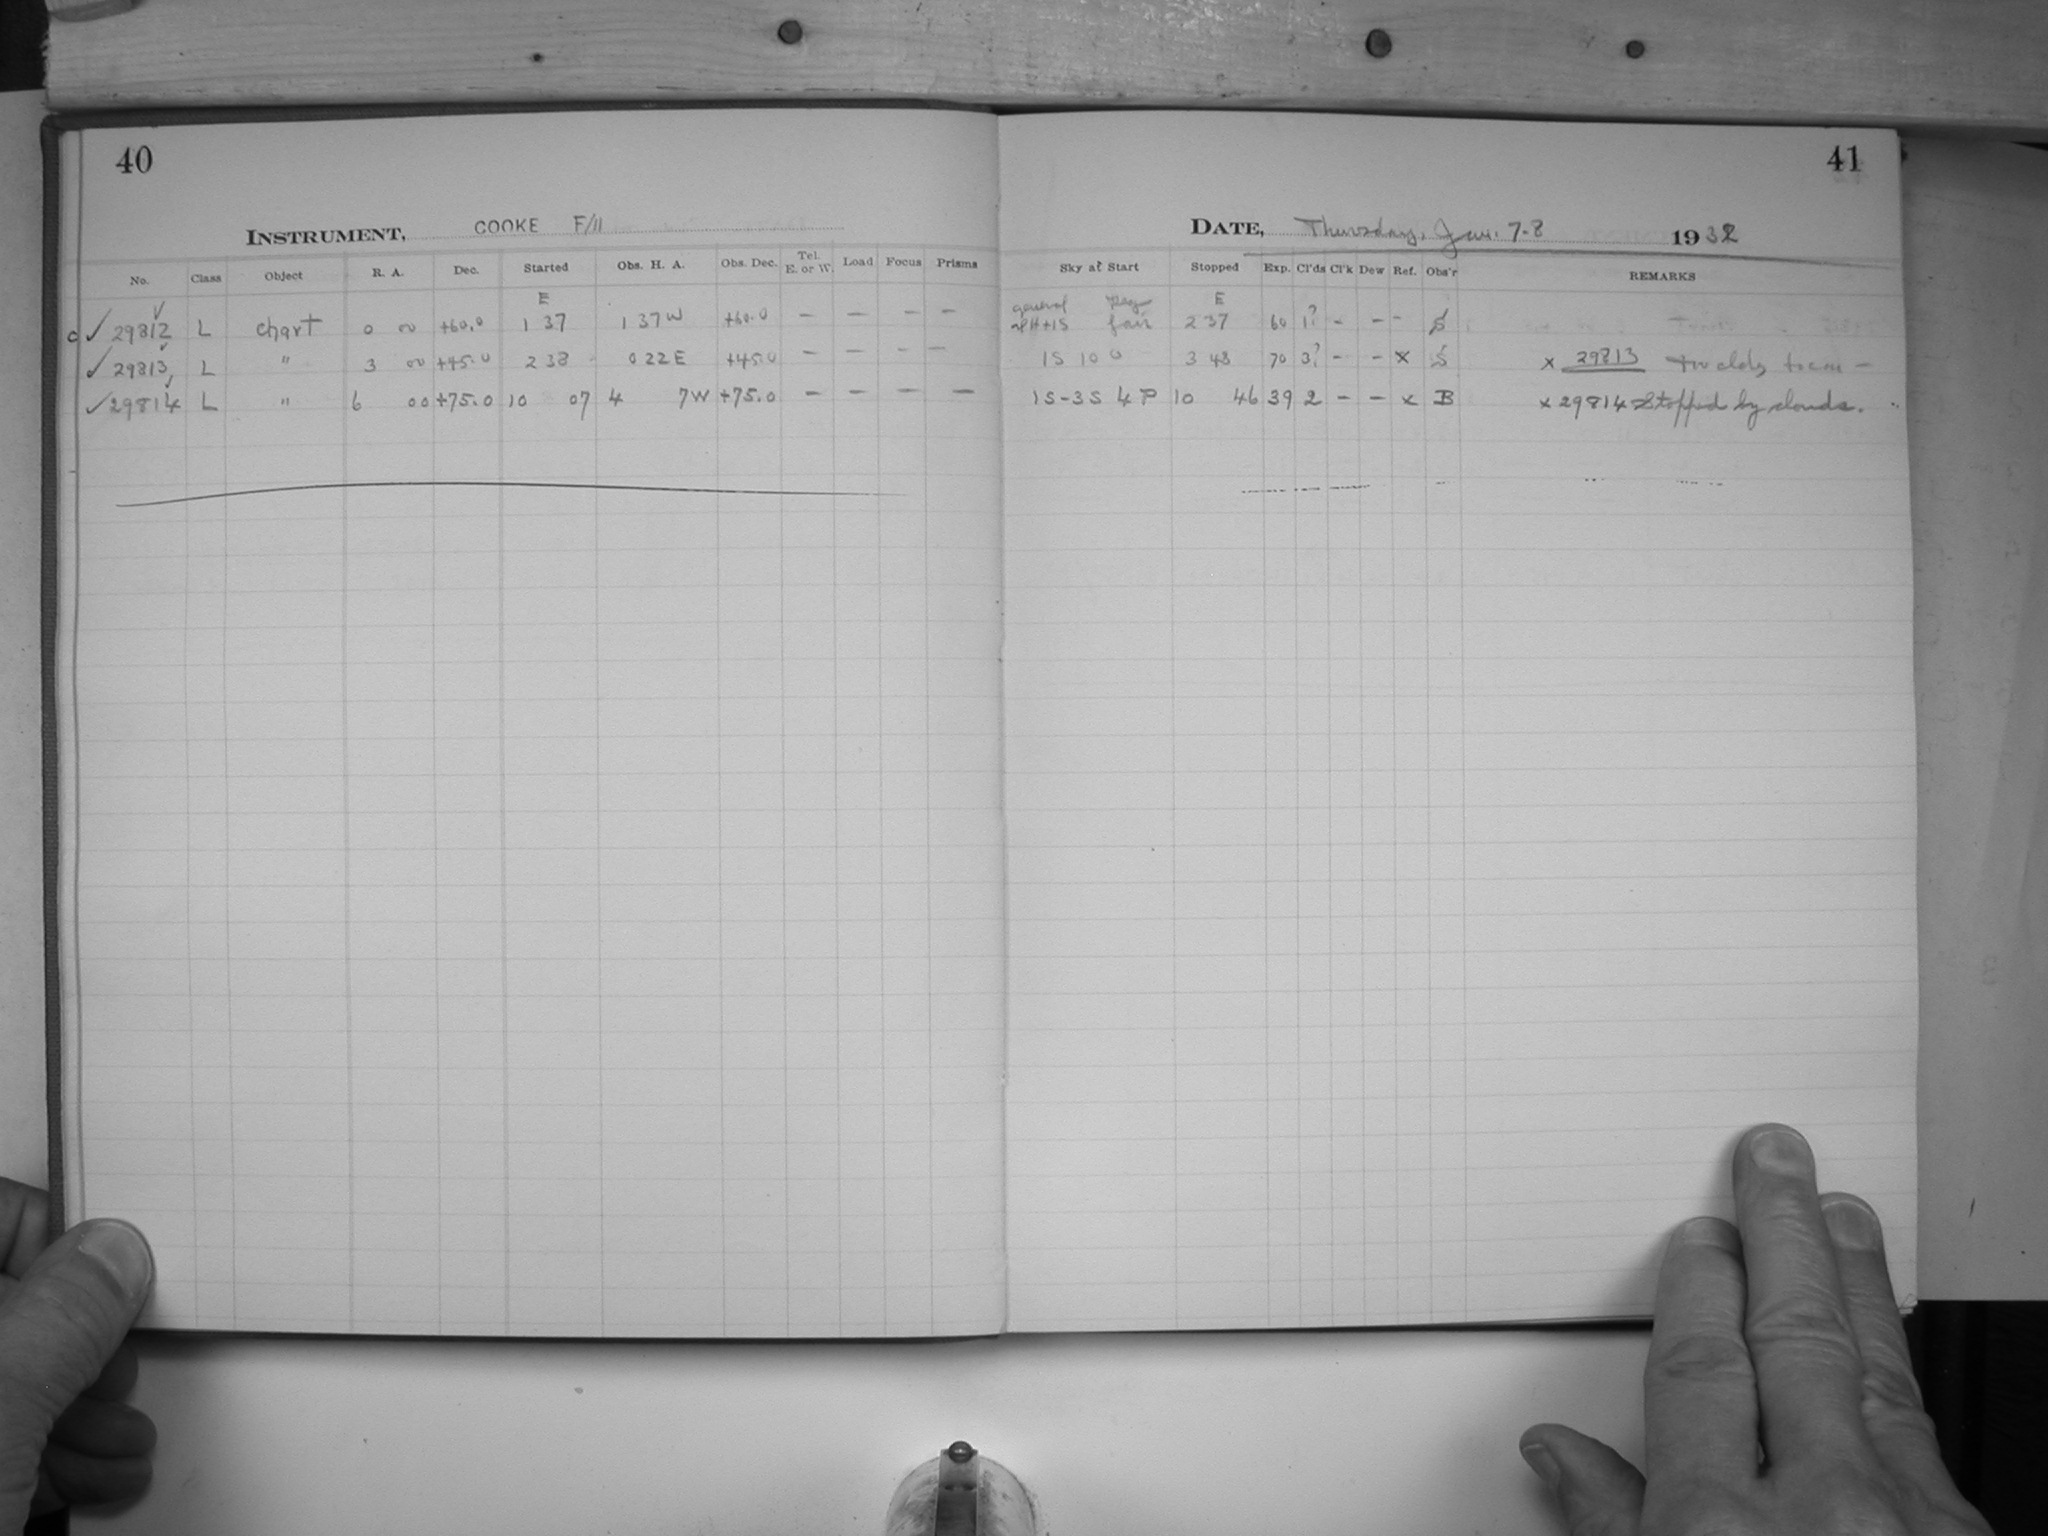 40
41
INSTRUMENT, COOKE F/11
DATE, Thursday, Jan. 7-8 1932
No. Class Object R. A. Dec. Started Obs. H. A. Obs. Dec. Tel. E. or W. Load Focus Prisms Sky at Start Stopped Exp. Cl'ds Cl'k Dew Ref. Obs'r REMARKS
E E
c ✓ 29812 L chart 0 00 +60.0 1 37 1 37 W +60.0 — — — — general fair 2 37 60 1? - - - S
✓ 29813 L " 3 00 +45.0 2 38 0 22 E +45.0 — — — — 1S 10 0 3 48 70 3? - - x S x 29813
✓ 29814 L " 6 00 +75.0 10 07 4 7W +75.0 — — — — 1S-3S 4 P 10 46 39 2 - - x B x 29814 Stopped by clouds.